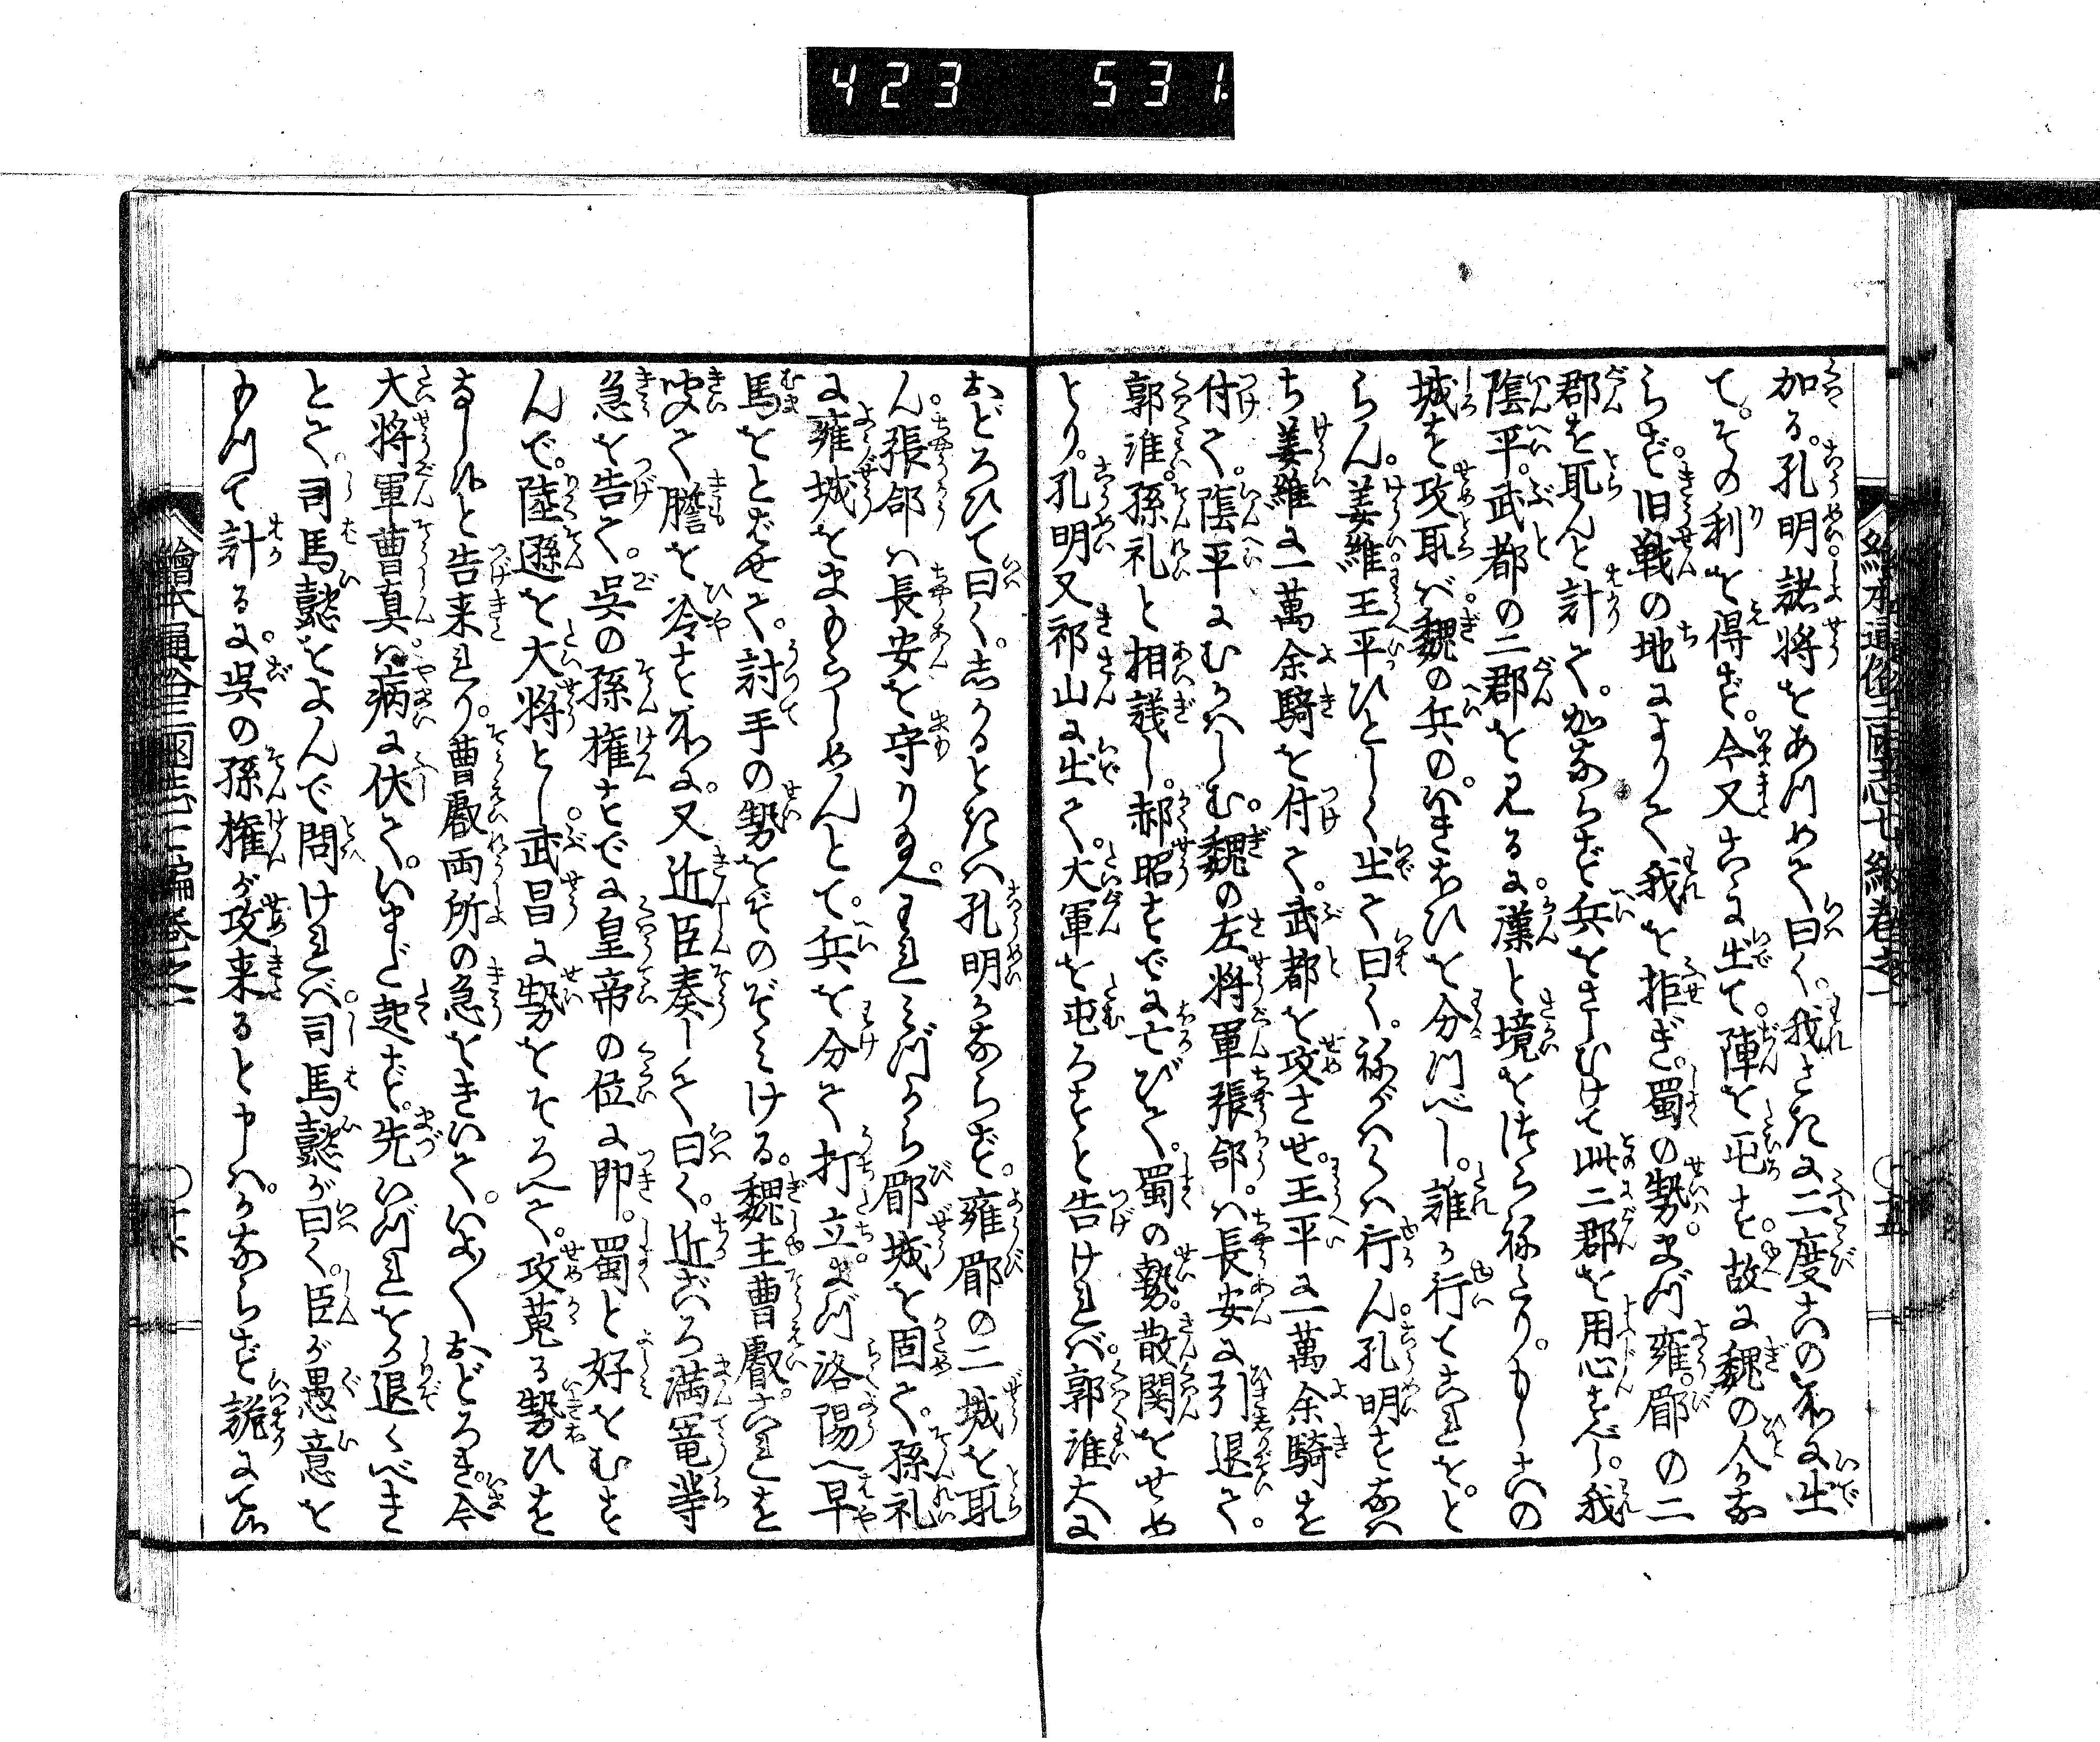 423 531.
繪本通俗三國志七編卷之一
加る。孔明諸将をあつめて曰く。我さきに二度この所に出
て。その利を得ず。今又こゝに出て。陣を屯す。故に魏の人かな
らず旧戦の地によりて我を拒ぎ。蜀の勢まづ雍。郿の二
郡を取んと計て。かならず兵をさしむけて此二郡を用心すべし。我
陰平。武都の二郡を見るに。漢と境をつらねたり。もしこの
城を攻取ば魏の兵の。いきおひを分つべし。誰か行てこれを。と
らん。姜維王平ひとしく出て曰く。ねがはくは行ん。孔明すなは
ち姜維に一萬余騎を付て。武都を攻させ。王平に一萬余騎を
付て。陰平にむかはしむ。魏の左将軍張郃。は長安に引退て。
郭淮。孫礼と相議し。郝昭すでに亡びて。蜀の勢。散関をせめ
とり。孔明又祁山に出て。大軍を屯ろすと告ければ。郭淮大に
おどろひて曰く。しかるときは孔明かならず。雍郿の二城を取
ん。張郃は長安を守り玉へ。われみづから郿城を固て。孫礼
に雍城をまもらしめんとて。兵を分て打立。まづ洛陽へ早
馬をとばせて。討手の勢をぞのぞみける。魏主曹叡。これを
聞て膽を冷す所に。又近臣奏して曰く。近ごろ満寵等
急を告て。呉の孫権すでに皇帝の位に即。蜀と好をむす
んで。陸遜を大将とし。武昌に勢をそろへて。攻蒐る勢ひを
なし候と告来れり。曹叡両所の急をきいて。いよ〱おどろき。今
大将軍曹真は病に伏て。いまだ起ず。先いづれをか退くべき
とて。司馬懿をよんで問ければ。司馬懿が曰く。臣が愚意を
もつて計るに。呉の孫権が攻来ると申は。かならず詭にてひ
繪本通俗三國志七編卷之一